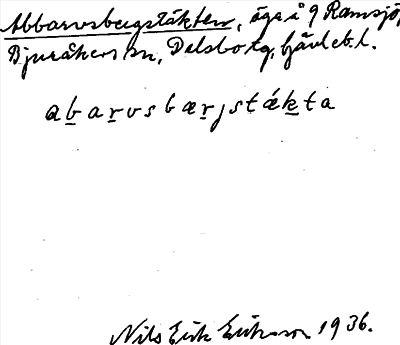 Abbarvsbergstäkten, äga i 9 Ramsjö,
Bjuråkers sn, Delsbo tg, Gävleb. l.
abarvsbærjstǽkta
Nils Erik Eriksson 1936.